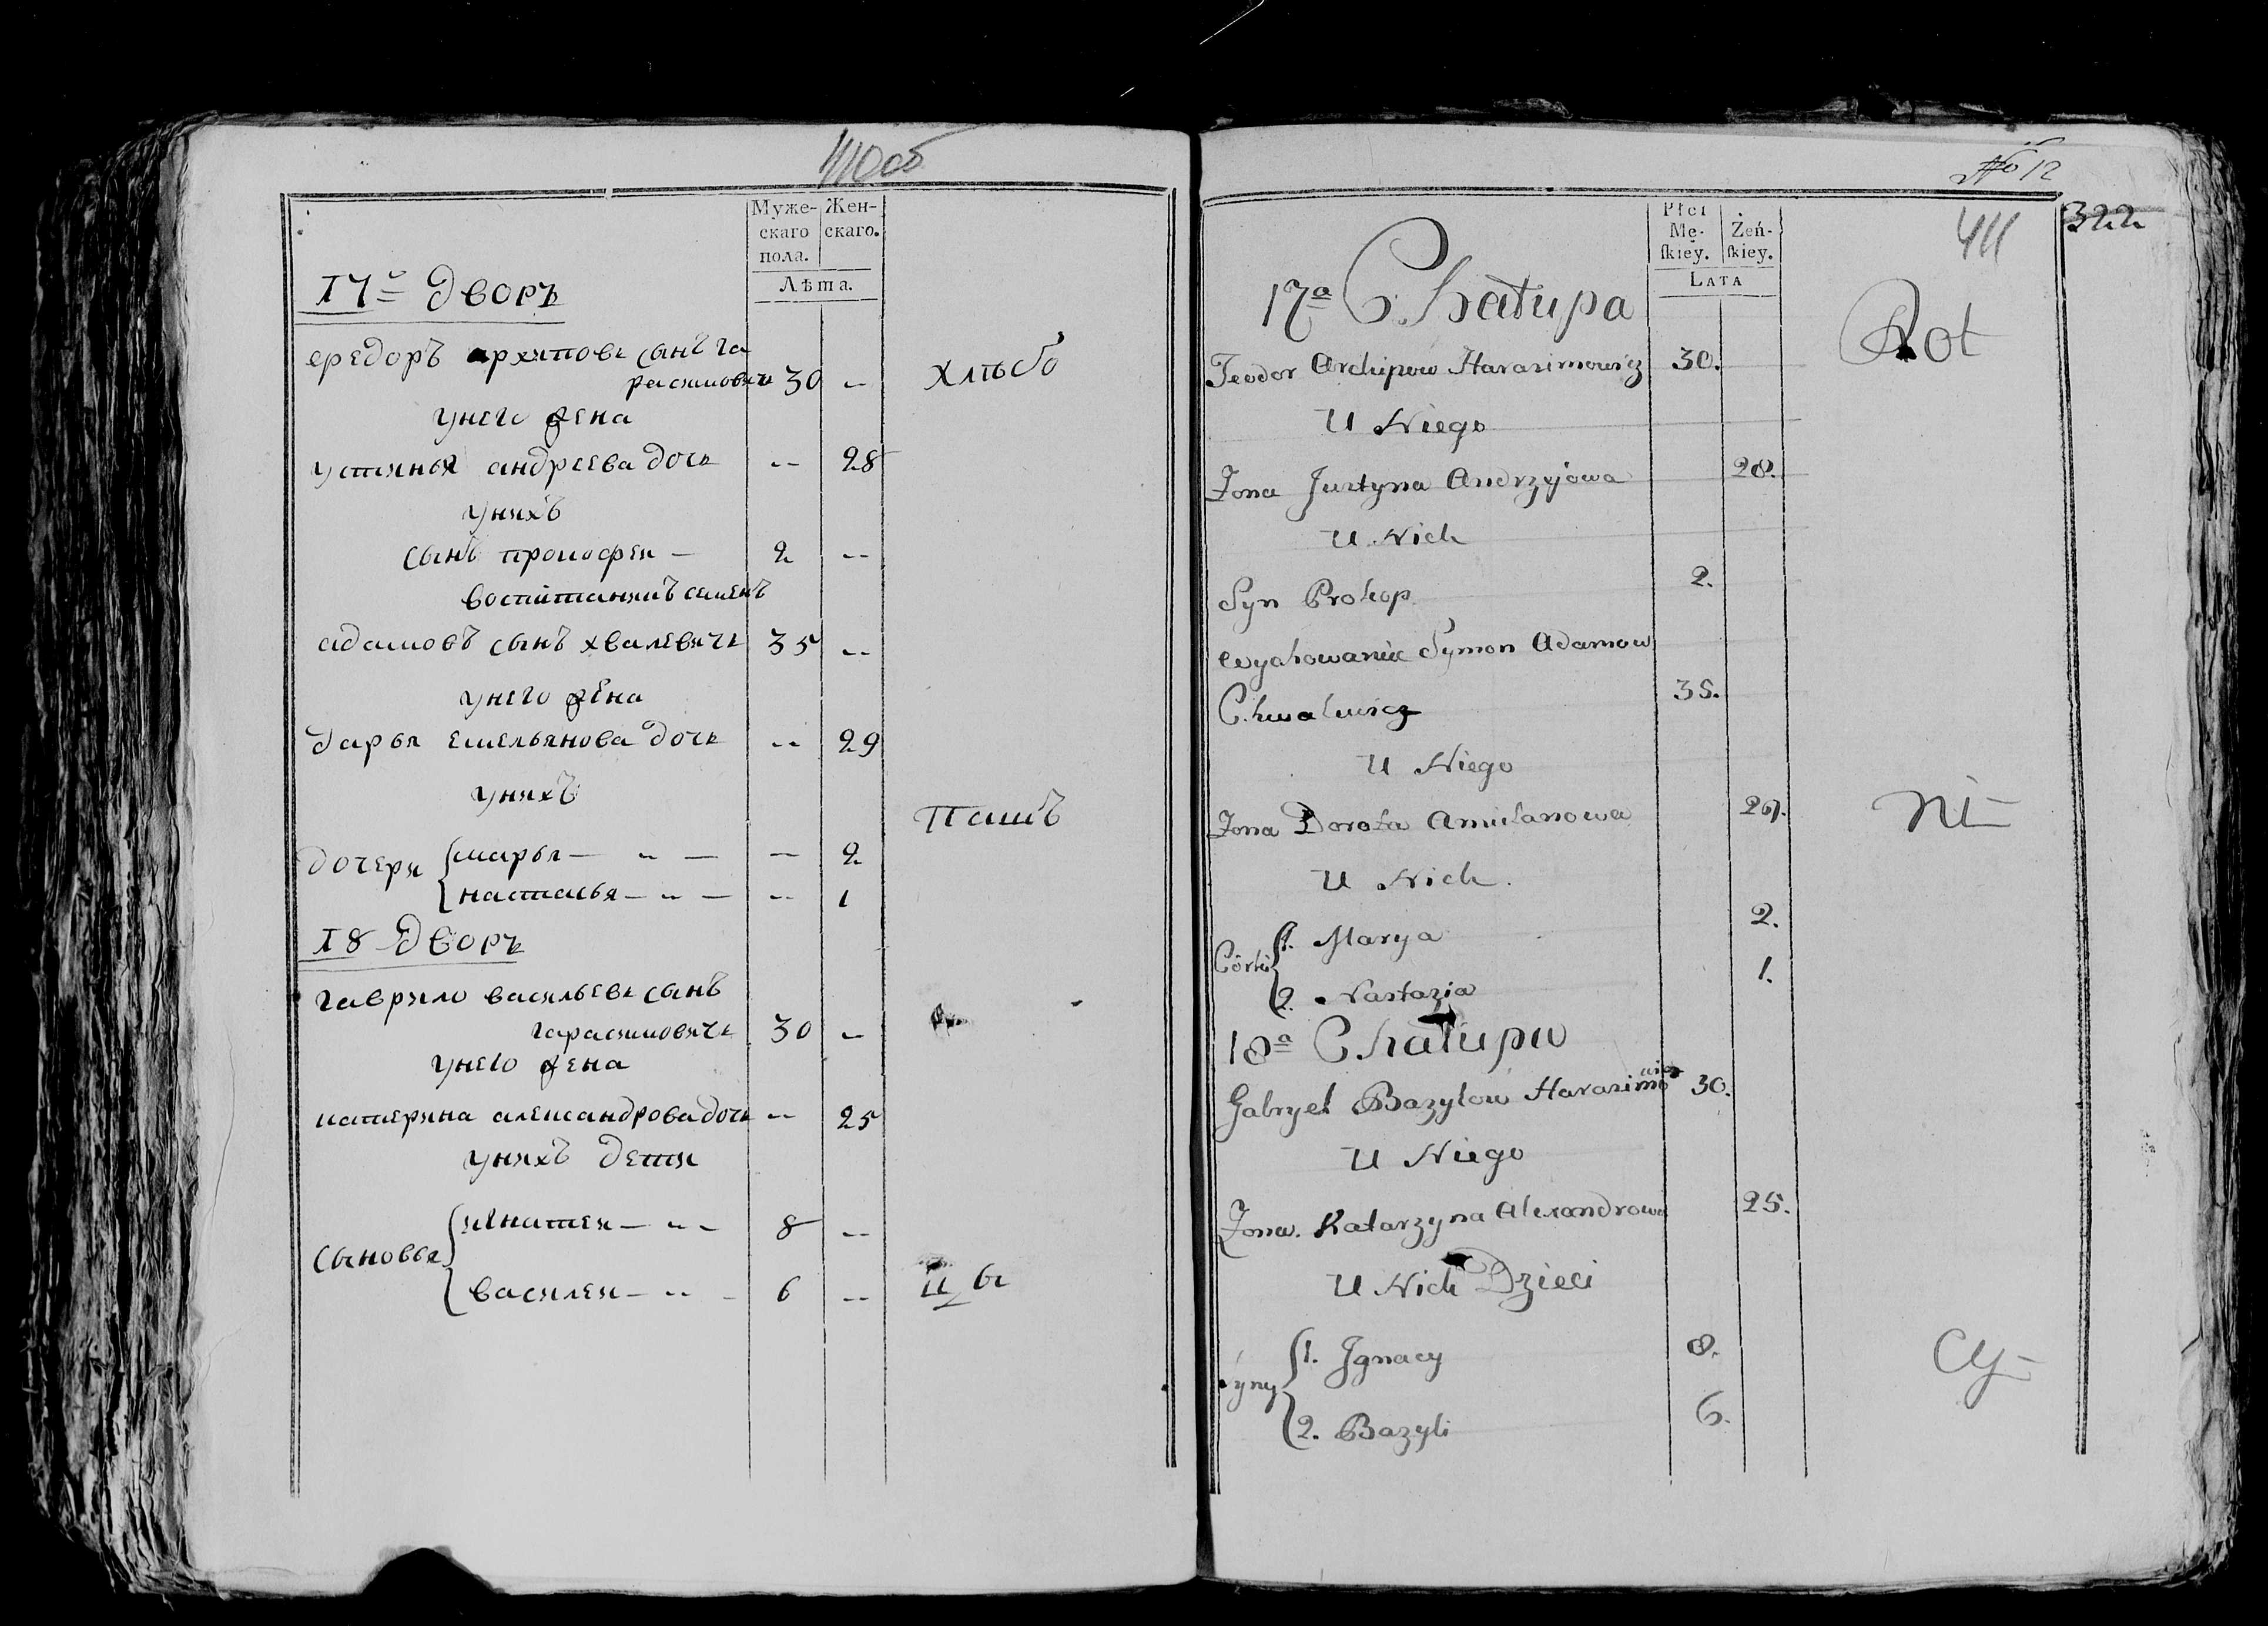 411 об
Муже-
скаго
пола.
Жен-
скаго.
Лѣта.
17й Дворъ
Федоръ архиповъ сынъ га
расимовичъ 30 --
Хлѣбо
унего жена
устинья андреева дочь -- 28
унихъ
сынъ прокофеи — 2 --
воспитанникъ семенъ
адамовъ сынъ хвалевичь 35 --
унего жена
дарья емельянова дочь -- 29
унихъ
Пашъ
дочери марья — " — -- 2
настасья — " — -- 1
18 Дворъ
гаврило васильевъ сынъ
гарасимовичь 30 --
унего жена
катерина александрова дочь -- 25
унихъ дети
сыновья игнатеи — " — 8 --
василеи — " — 6 --
цы
№ 12
411
322
Płci
Mę-
ſkiey.
Żeń-
ſkiey.
LATA
17a Chałupa
Rot
Teodor Archipow Harasimowicz 30.
U Niego
Żona Justyna Andrzejowa 28.
U Nich
Syn Prokop 2.
Wychowaniec Symon Adamow
Chwalewicz 35.
U Niego
Żona Dorota Amilanowa 29.
ni-
U Nich.
Córki 1. Marya 2.
2. Nastazia 1.
18a Chałupa
Gabryel Bazylow Harasimowicz 30.
U Niego
Żona Katarzyna Alexandrowa 25.
U Nich Dzieci
Syny 1. Jgnacy 8.
cy-
2. Bazyli 6.